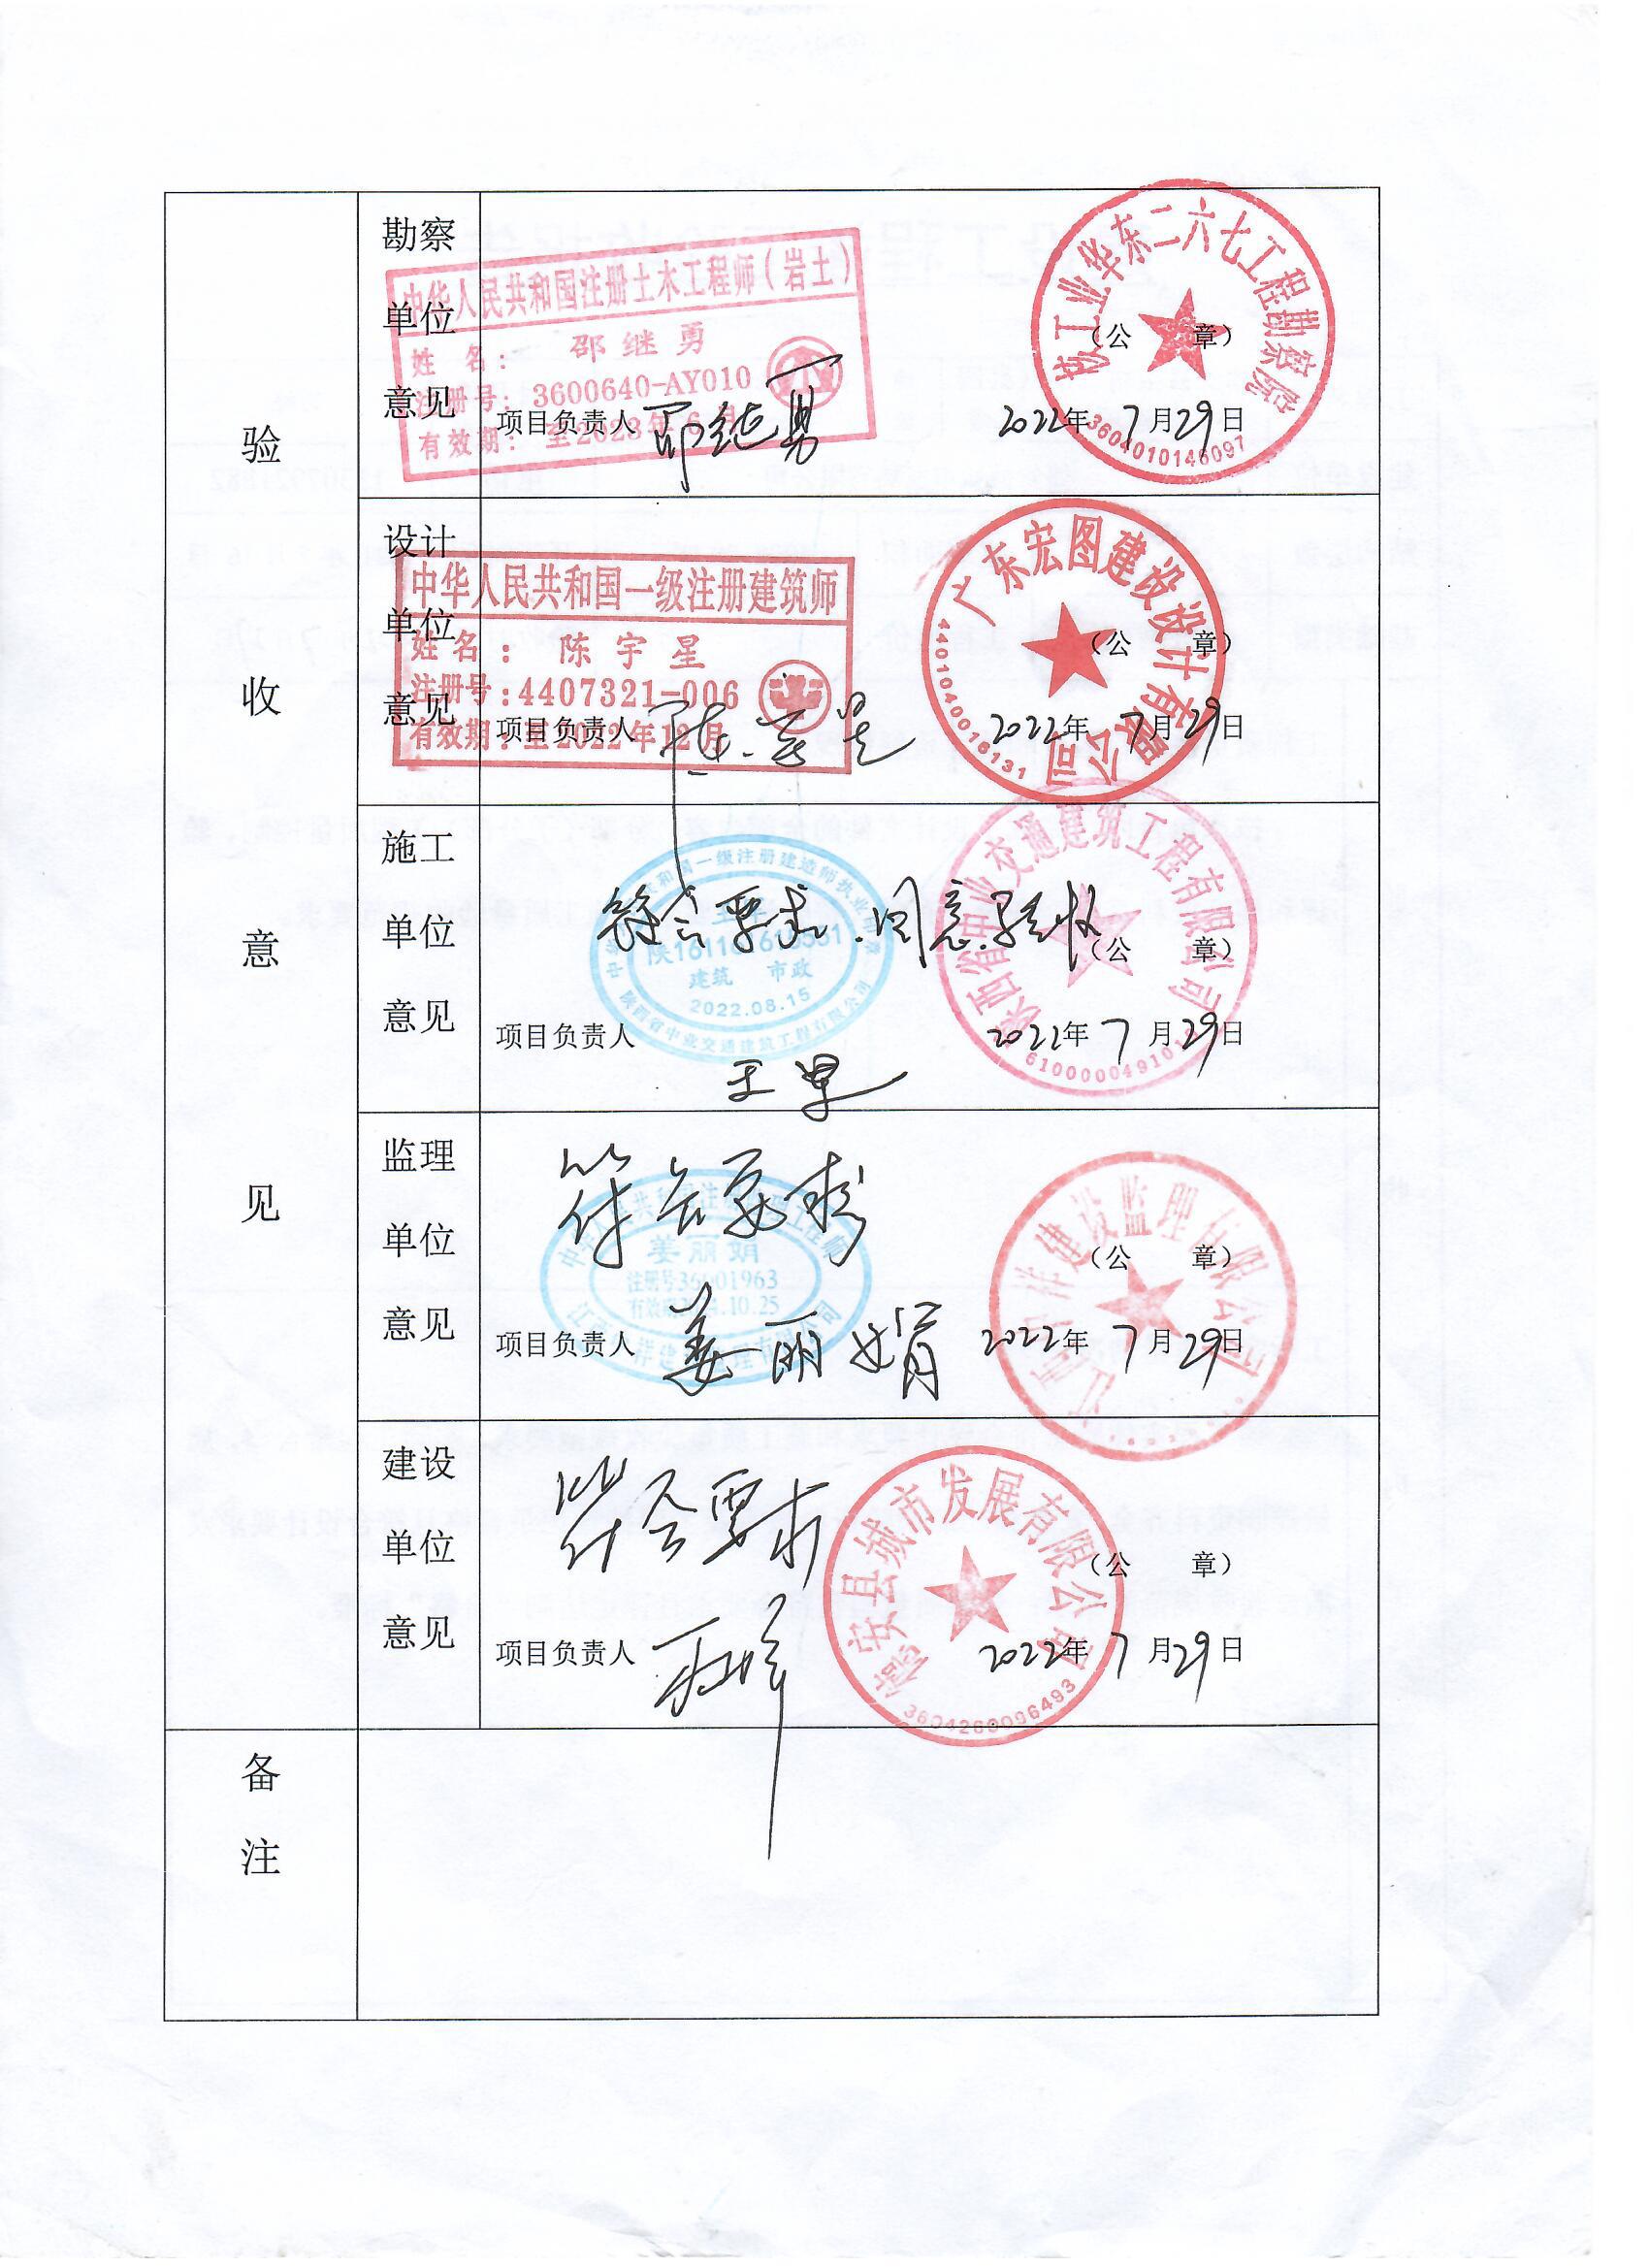 验
收
意
见
勘察
单位
意见
中华人民共和国注册土木工程师（岩土）
姓 名： 邵继勇
注册号：3600640-AY010
有效期：至2023年6月
项目负责人 邵继勇
核工业华东二六七工程勘察院
3604010146097
（公 章）
2022年7月29日
设计
单位
意见
中华人民共和国一级注册建筑师
姓名： 陈宇星
注册号：4407321-006
有效期：至2022年12月
项目负责人 陈宇星
广东宏图建设设计有限公司
4401040016131
（公 章）
2022年7月29日
施工
单位
意见
符合要求.同意验收
建筑 市政
2022.08.15
陕西省中业交通建筑工程有限公司
项目负责人
陕西省中业交通建筑工程有限公司
（公 章）
2022年7月29日
监理
单位
意见
符合要求
姜丽娟
项目负责人 姜丽娟
建设监理有限公司
（公 章）
2022年7月29日
建设
单位
意见
符合要求
项目负责人
德安县城市发展有限公司
3604260096493
（公 章）
2022年7月29日
备
注